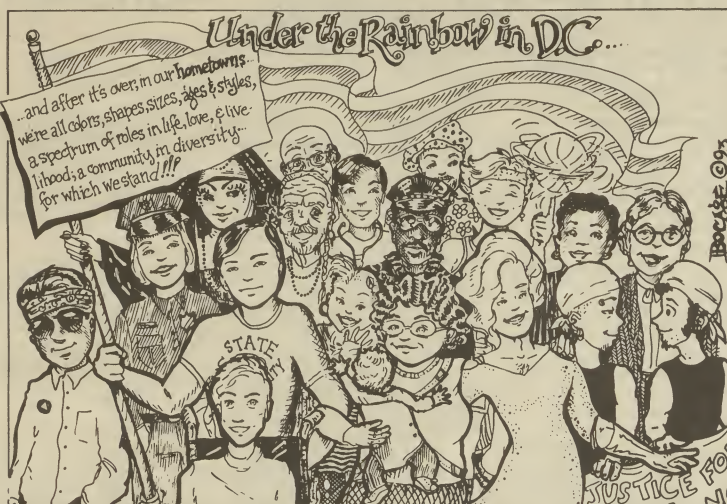 Under the Rainbow in D.C....
...and after it's over, in our hometowns...
we're all colors, shapes, sizes, ages & styles,
a spectrum of roles in life, love, & live-
lihood; a community, in diversity...
for which we stand!!!
STATE
TY
JUSTICE FO